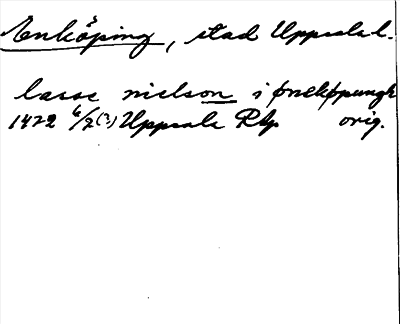 Enköping, stad Uppsala l.
lasse nielson i ønekøpungh
1422 6/2 (?) Uppsala Rkp orig.